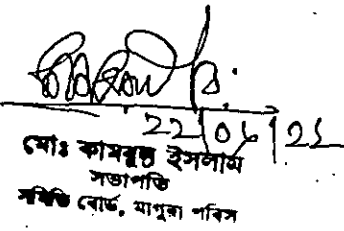 22/06/25
মোঃ কামরুল ইসলাম
সভাপতি
সমিতি বোর্ড, মাগুরা পবিস